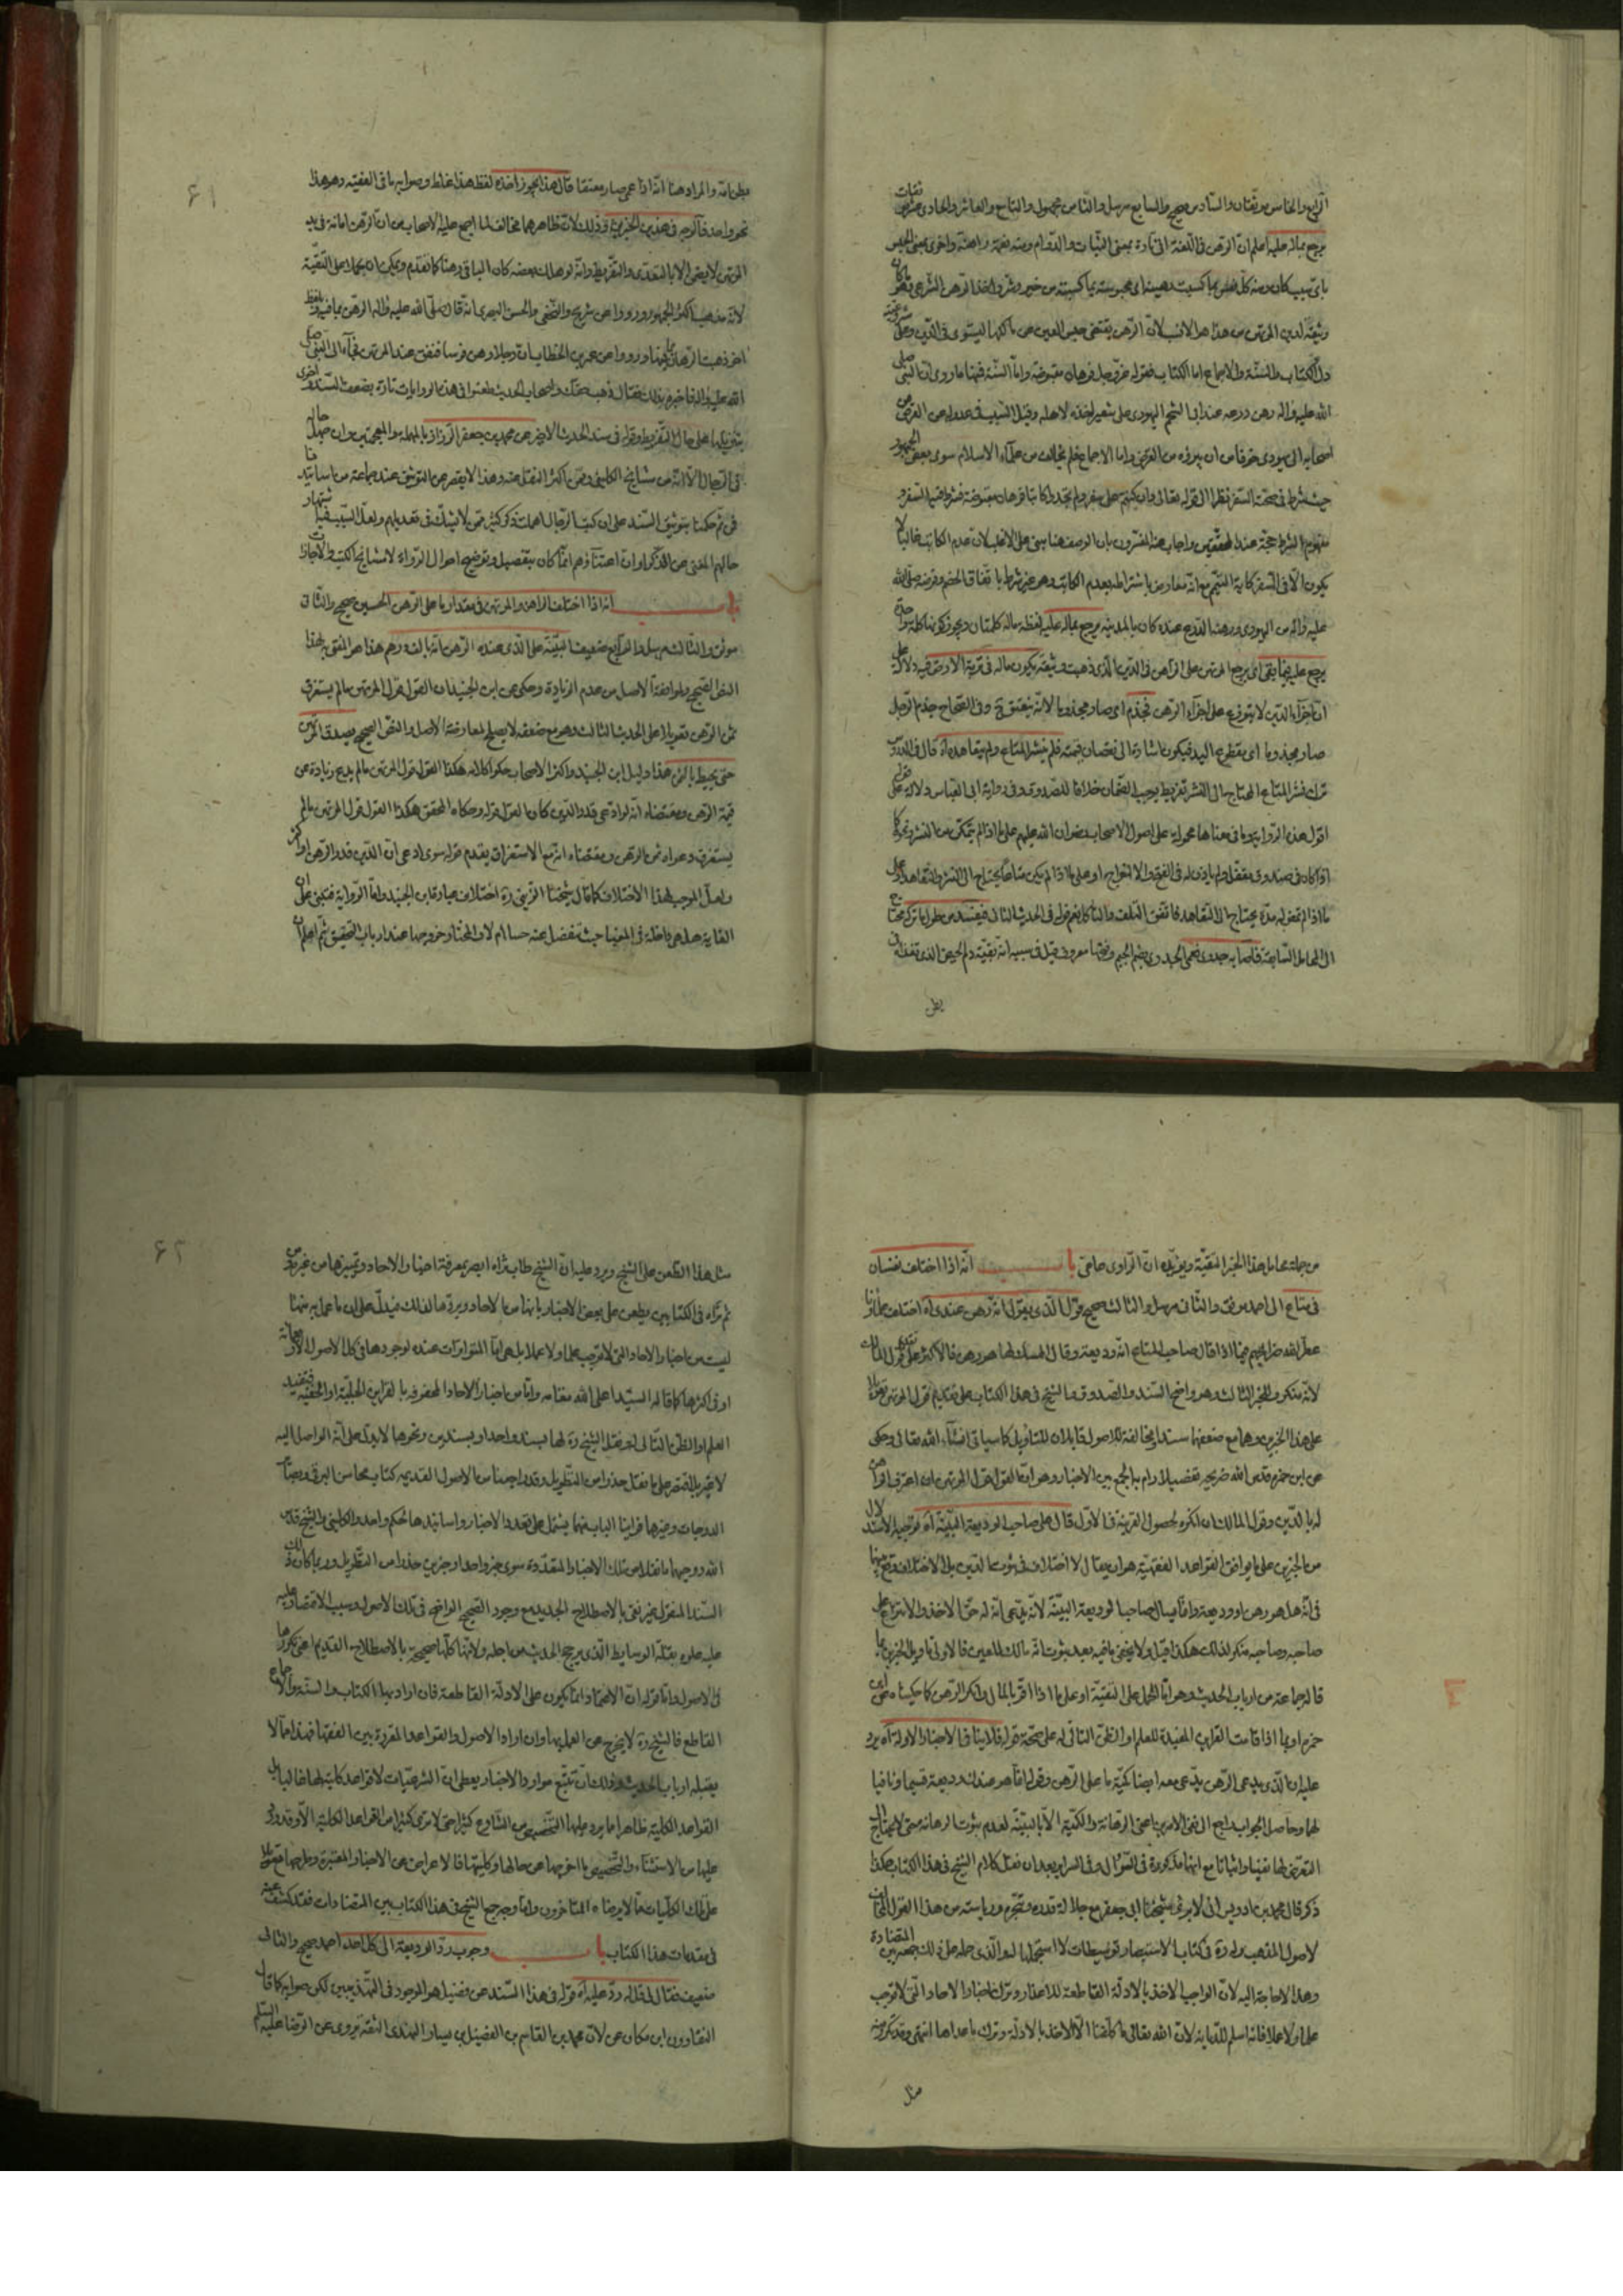 الرابع والخامس موثقان والسادس صحيح والسابع مرسل والثامن مجهول والتاسع والعاشر والحادي عشر ثقات
يرجع بماله عليه اعلم ان الرهن في اللغة اتى تارة بمعنى الثبات والدوام ومنه نعمة راهنة واخرى بمعنى الحبس
باي سبب كان ومنه كل نفس بما كسبت رهينة اي محبوسة بما كسبته من خير وشر واخذ الرهن الشرعي
وثيقة لدين المرتهن من هذا هو الانسب لان الرهن يقتضي حبس العين عن مالكها ليستوفى الدين
دل الكتاب والسنة والاجماع اما الكتاب فقوله عز وجل فرهان مقبوضة واما السنة فمنها ما روي ان النبي صلى
الله عليه واله رهن درعه عند ابي الشحم اليهودي على شعير اخذه لاهله وقيل السبب في عدوله عن القرض من
اصحابه الى يهودي خوفا من ان يبرؤه من القرض واما الاجماع فلم يخالف من علماء الاسلام سوى بعض الجمهور
حيث شرط في صحته السفر نظرا الى قوله تعالى وان كنتم على سفر ولم تجدوا كاتبا فرهان مقبوضة فشرط فيها السفر و
مفهوم الشرط حجة عند المحققين واجاب عنه المفسرون بان الوصف هنا مبني على الاغلب لان عدم الكاتب غالبا لا
يكون الا في السفر كاية التيمم مع انه معارض باشتراطه بعدم الكاتب وهو غير شرط باتفاق الخصم وقرضه صلى الله
عليه واله من اليهودي ورهنه الدرع عنده كان بالمدينة يرجع بماله عليه لفظة ماله كلمتان ويجوز كونها كلمة واحدة
يرجع عليه فيما بقي اي يرجع المرتهن على الراهن في الدين الذي ذهبت وثيقته يكون ماله في تربة الارض فيه دلالة على
ان اجزاء الدين لا يتوزع على اجزاء الرهن فجذم اي صار مجذوما لانه ينعتق وفي الصحاح جذم الرجل
صار مجذوما اي مقطوع اليد فيكون اشارة الى نقصان قيمته فلم ينشر المتاع ولم يتعاهده اه قال في الدروس
ترك نشر المتاع المحتاج الى النشر تفريط يوجب الضمان خلافا للصدوق وفي رواية ابي العباس دلالة على قوله
اقول هذه الرواية وما في معناها محمولة على اصول الاصحاب رضوان الله عليهم على ما اذا لم يتمكن من النشر
اذا كان في صندوق مقفل ولم ياذن له في الفتح والاخراج او على ما اذا لم يكن متاعا يحتاج الى النشر والتعاهد او على
ما اذا لم تمض له مدة يحتاج الى التعاهد فاتفق التلف
الى المحامل السابقة فاصابه جدري
بطن
٤١
بطن امه والمراد هنا انه اذا عمي صار معتقا قال هذا يجوز اخذه لفظ هذا غلط وصوابه ما في الفقيه وهو هذا
نحو واحد فالوجه في هذين الخبرين اه وذلك لان ظاهرهما مخالف لما اجمع عليه الاصحاب من ان الرهن امانة في يد
المرتهن لا يضمن الا بالتعدي والتفريط وانه لو هلك بعضه كان الباقي رهنا كما تقدم ويمكن ان يحملا على التقية
لانه مذهب اكثر الجمهور ورووا عن شريح والنخعي والحسن البصري انه قال صلى الله عليه واله الرهن بما فيه وبلفظ
اخر ذهبت الرهان بما فيها ورووا عن عمر بن الخطاب ان رجلا رهن فرسا فنفق عند المرتهن فجاء الى النبي صلى
الله عليه واله فاخبره بذلك فقال ذهب حقك واصحاب الحديث طعنوا في هذه الروايات تارة بضعف السند واخرى
بتنزيلها على حال التفريط وقوله في سند الحديث الاخير عن محمد بن جعفر الرزاز بالمهملة والمعجمتين وان جهل حاله
في الرجال الا انه من مشايخ الكليني وممن اكثر النقل عنه وهذا لا يقصر عن التوثيق عند جماعة من اساتيذنا
فمن ثم حكمنا بتوثيق السند على ان كتب الرجال اهملت ذكر كثير ممن لا يشك في تعديلهم ولعل السبب فيه اشتهار
حالهم المغني عن الذكر او ان اعتناءهم انما كان بتفصيل وتوضيح احوال الرواة لا مشايخ الكتب والاجازات
باب انه اذا اختلف الراهن والمرتهن في مقدار ما على الرهن الحسين صحيح والثاني
موثق والثالث مرسل والرابع ضعيف البينة على الذي عنده الرهن انه بالف درهم هذا هو المفتى به لهذا
النص الصحيح ولموافقة الاصل من عدم الزيادة وحكي عن ابن الجنيد ان القول قول المرتهن ما لم يستغرق
ثمن الرهن تعويلا على الحديث الثالث وهو مع ضعفه لا يصلح لمعارضة الاصل والنص الصحيح يصدق المرتهن
حتى يحيط بالثمن هذا دليل ابن الجنيد واكثر الاصحاب حكوا كلامه هكذا القول قول المرتهن ما لم يدع زيادة عن
قيمة الرهن ومقتضاه انه لو ادعى قدر الدين كان القول قوله وحكاه المحقق هكذا القول قول المرتهن ما لم
يستغرق دعواه ثمن الرهن ومقتضاه انه مع الاستغراق يقدم قوله سوى ادعى ان الدين قدر الرهن او اكثر
ولعل الموجب لهذا الاختلاف كما قال شيخنا الزيني ره اختلاف عبارة ابن الجنيد واما الرواية فتبنى على ان
الغاية هل هي داخلة في المغيا حيث تنفصل عنه حسا ام لا والمختار خروجها عند ارباب التحقيق ثم اعلم ان
من جملة محامل هذا الخبر التقية ويؤيده ان الراوي عامي باب انه اذا اختلف نفسان
في متاع الى احد موثق والثاني مرسل والثالث صحيح قول الذي يقول انه رهن عندي اه اختلف علماؤنا
عطر الله ضرايحهم فيما اذا قال صاحب المتاع انه وديعة وقال الممسك لها هو رهن فالاكثر على تقديم قول المالك
لانه منكر وللخبر الثالث وهو واضح السند والصدوق والشيخ في هذا الكتاب على تقديم قول المرتهن تعويلا
على هذا الخبرين وهما مع ضعفهما سندا ومخالفة للاصول قابلان للتاويل كما سياتي انشاء الله تعالى وحكى
عن ابن حمزة قدس الله ضريحه تفصيلا رام به الجمع بين الاخبار وهو ان القول قول المرتهن ان اعترف الراهن
له بالدين وقول المالك ان انكره لحصول القرينة في الاول قال على صاحب الوديعة البينة اه توجيه الاستدلال
من الخبرين على ما يوافق القواعد الفقهية هو ان يقال لا اختلاف في ثبوت الدين بل الاختلاف وقع بينهما
في انه هل هو رهن او وديعة وانما يسال صاحب الوديعة البينة لانه يدعي انه له حق الاخذ والانتزاع على
صاحبه وصاحبه منكر لذلك هكذا قيل ولا يخفى ما فيه بعد ثبوت انه مالك للعين فالاولى تاويل الخبرين بما
قاله جماعة من ارباب الحديث وهو اما الحمل على التقية او على ما اذا اقر بالمال وانكر الرهن كما حكيناه عن ابن
حمزة او بما اذا قامت القراين المفيدة للعلم او الظن المتاخي له على صحة قوله فلا ينافي الاخبار الاولة اه يرد
عليه ان الذي يدعي الرهن يدعي معه ايضا كمية ما على الرهن وقوله انما هو عندك وديعة قسيما ونافيا
لهما وحاصل الجواب راجع الى نفي الامرين اعني الرهانة والكمية الا بالبينة لعدم ثبوت الرهانة حتى لا يحتاج الى
التعرض لها نفيا واثباتا مع انها مذكورة في السؤال وفي السراير بعد ان نقل كلام الشيخ في هذا الكتاب هكذا
ذكر قال محمد بن ادريس اني لاربئ بشيخنا ابي جعفر مع جلالة قدره وتبحره ورياسته من هذا القول المخالف
لاصول المذهب وله ره في كتاب الاستبصار توسطات لا استجملها له والذي حمله على ذلك جمعه بين المتضادة
وهذا لا حاجة اليه لان الواجب الاخذ بالادلة القاطعة للاعذار وترك اخبار الاحاد التي لا توجب
علما ولا عملا فانه اسلم للديانة لان الله تعالى ما كلفنا الا الاخذ بالادلة وترك ما عداها انتهى وقد تكرر منه
مثل
٤٢
مثل هذا الطعن على الشيخ ويرد عليه ان الشيخ طاب ثراه ابصر بمعرفة اخبار الاحاد وتمييزها من غيره
ثم تراه في الكتابين يطعن على بعض الاخبار بانها من الاحاد ويردها لذلك فيدل على ان ما عمل به منها
ليست من اخبار الاحاد التي لا توجب علما ولا عملا بل هي اما المتواترات عنده لوجودها في كل الاصول الاربعمائة
او في اكثرها كما قاله السيد اعلى الله مقامه واما من اخبار الاحاد المحفوفة بالقراين الجلية او الخفية فتفيد
العلم او الظن المتاخي له ونقل الشيخ ره لها بسند واحد او بسندين ونحوها لا يدل على انه الواصل اليه
لا غير بل اقتصر على ما نقل حذرا من التطويل وقد راجعنا من الاصول القديمة كتاب محاسن البرقي وبصائر
الدرجات وغيرها فراينا الباب منها يشتمل على تعدد الاخبار واسانيدها لحكم واحد والكليني والشيخ قدس
الله روحيهما ما نقلا من تلك الاخبار المتعددة سوى خبر واحد او خبرين حذرا من التطويل وربما كان ذلك
السند المنقول غير نقي بالاصطلاح الجديد مع وجود الصحيح الواضح في تلك الاصول وسبب الاقتصار عليه
عليه علوه بقلة الوسايط الذي يرجح الحديث من اجله ولانها كلها صحيحة بالاصطلاح القديم اعني تكررها
في الاصول واما قوله ان الاعتماد انما يكون على الادلة القاطعة فان اراد بها الكتاب والسنة والاجماع
القاطع فالشيخ ره لا يخرج عن العمل بها وان اراد الاصول والقواعد المقررة بين الفقهاء فهذا مما لا
يقبله ارباب الحديث وذلك ان تتبع موارد الاخبار يعطي ان الشرعيات لا قواعد كلية لها غالبا بل
القواعد الكلية ظاهرا ما يرد عليها التخصيص من الشارع كثيرا حتى لا ترى كثيرا من القواعد الكلية الا وقد ورد
عليها من الاستثناء والتخصيص ما اخرجها عن حالها وكليتها فالاعراض عن الاخبار المعتبرة وطرحها تعويلا
على تلك الكليات مما لا يرضاه المتاخرون واما وجه جمع الشيخ في هذا الكتاب بين المتضادات فقد كشفت عنه
في مقدمات هذا الكتاب باب وجوب رد الوديعة الى كل احد احمد صحيح والثاني
ضعيف فقال لي قل له رد عليه اه قوله في هذا السند عن فضيل هو الموجود في التهذيبين لكن صوابه كما قال
النقادون ابن مكان عن لان محمد بن القاسم بن الفضيل بن يسار النهدي الثقة يروي عن الرضا عليه السلم